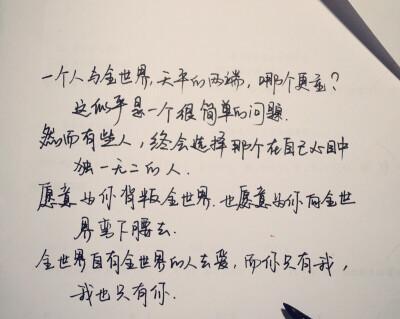 一个人与全世界,天平的两端,哪个更重?
这似乎是一个很简单的问题.
然而有些人,终会选择那个在自己心目中
独一无二的人.
愿意为你背叛全世界.也愿意为你向全世
界弯下腰去.
全世界自有全世界的人去爱,而你只有我,
我也只有你.